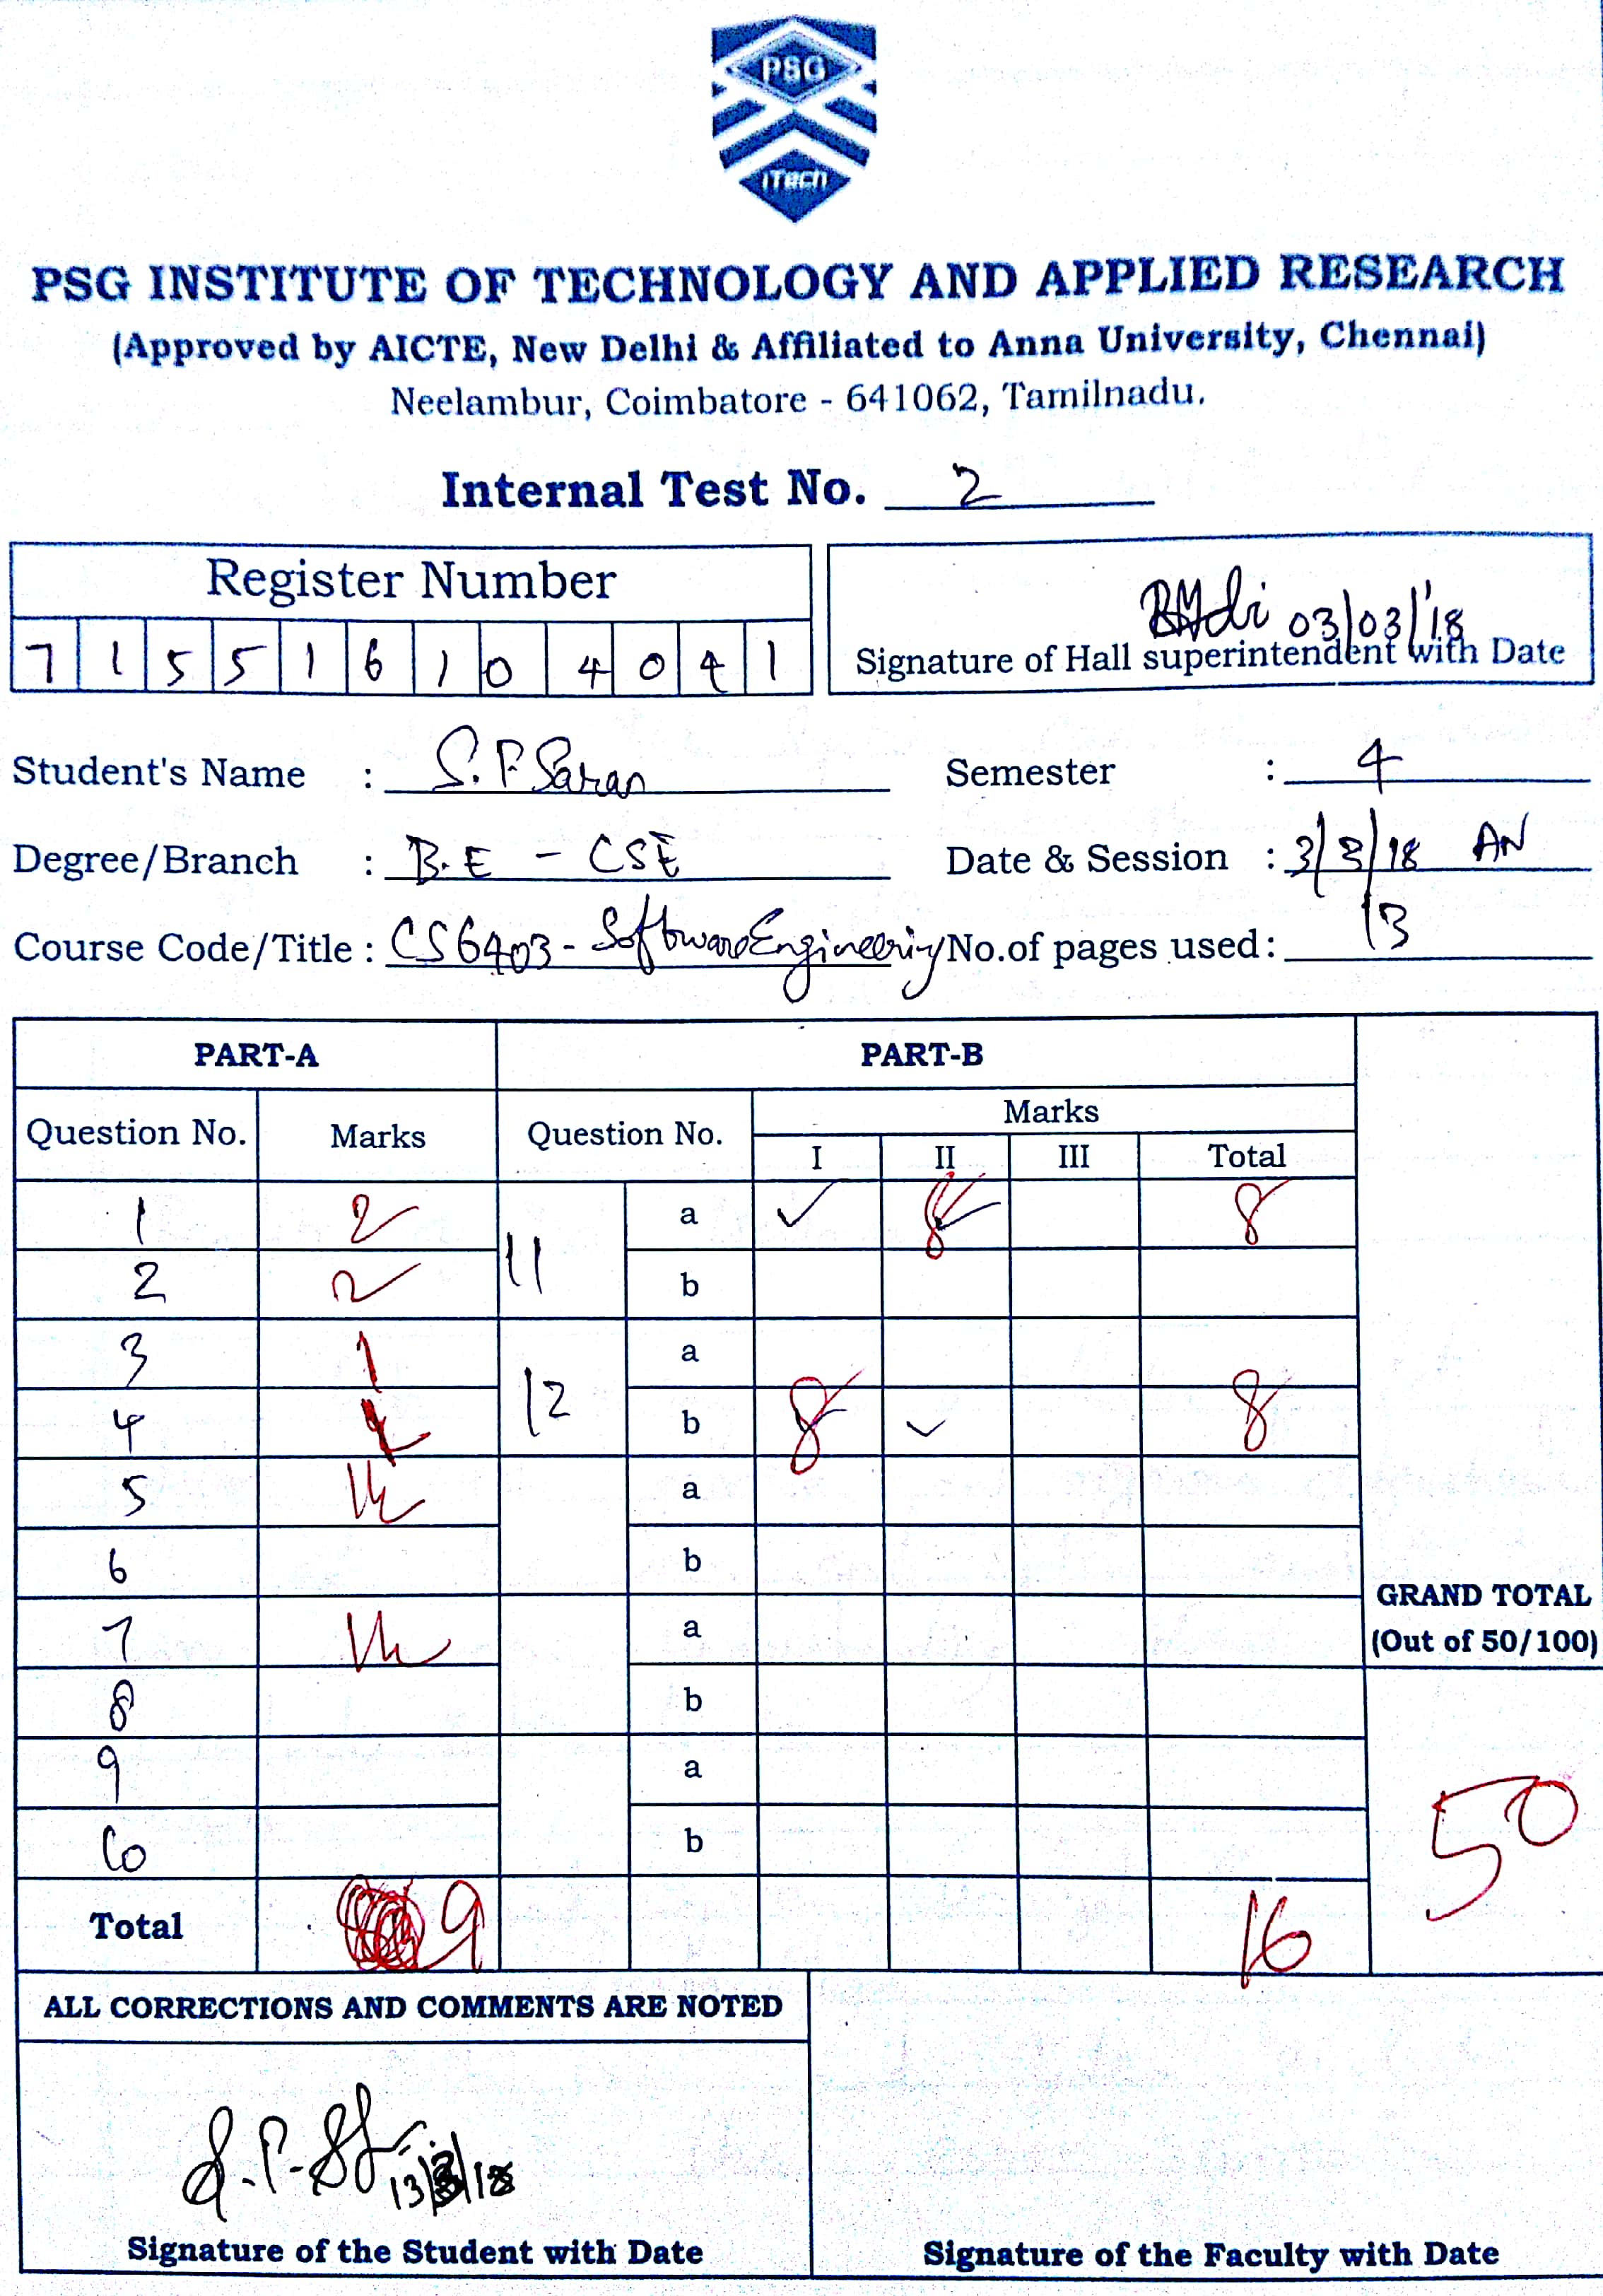 PSG
iTech
PSG INSTITUTE OF TECHNOLOGY AND APPLIED RESEARCH
(Approved by AICTE, New Delhi & Affiliated to Anna University, Chennai)
Neelambur, Coimbatore - 641062, Tamilnadu.
Internal Test No. 2
Register Number
7 1 5 5 1 6 1 0 4 0 4 1
03/03/'18
Signature of Hall superintendent with Date
Student's Name : S.P Saran Semester : 4
Degree/Branch : B.E - CSE Date & Session : 3/3/18 AN
Course Code/Title : CS6403 - Software Engineering No.of pages used: 13
PART-A PART-B
Question No. Marks Question No. Marks
I II III Total
1 2 11 a ✓ 8 8
2 2 b
3 1 12 a
4 b 8 ✓ 8
5 a
6 b
7 a
8 b
9 a
10 b
GRAND TOTAL
(Out of 50/100)
50
Total 9 16
ALL CORRECTIONS AND COMMENTS ARE NOTED
Signature of the Student with Date Signature of the Faculty with Date